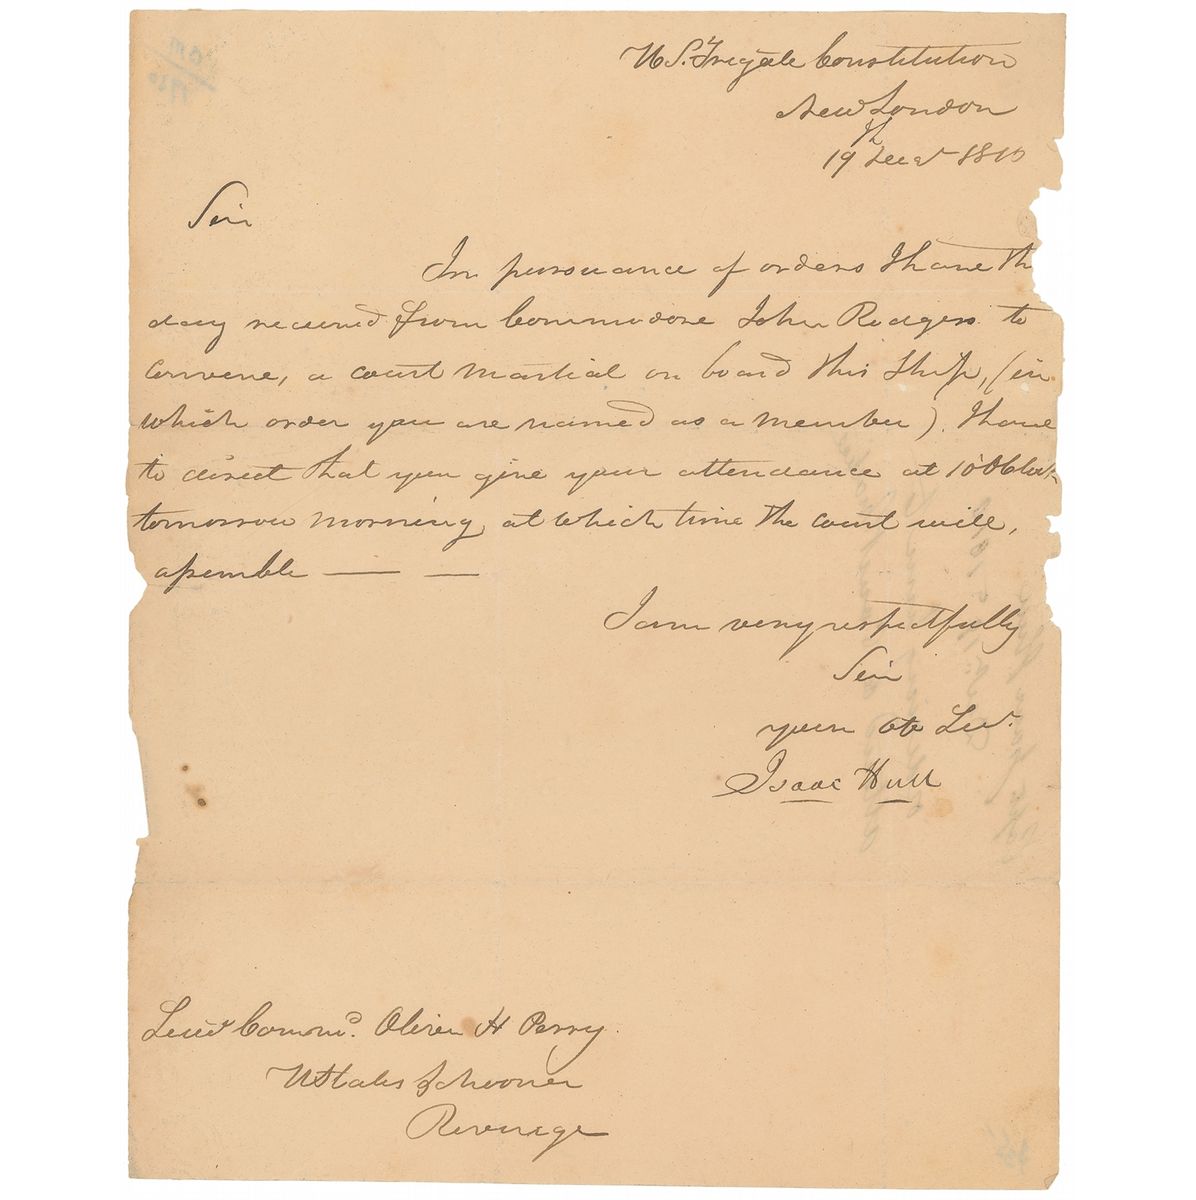 U S. Frigate Constitution
New London
19th Decr 1810
Sir
In pursuance of orders I have th
day received from Commodore John Rodgers to
convene, a court martial on board this Ship, (in
which order you are named as a member). I have
to direct that you give your attendance at 10 OCloc
tomorrow morning, at which time the court will,
assemble — —
I am very respectfully
Sir
your Ob
Isaac Hull
Lieut Commd. Oliver H Perry.
UStates Schooner
Revenge